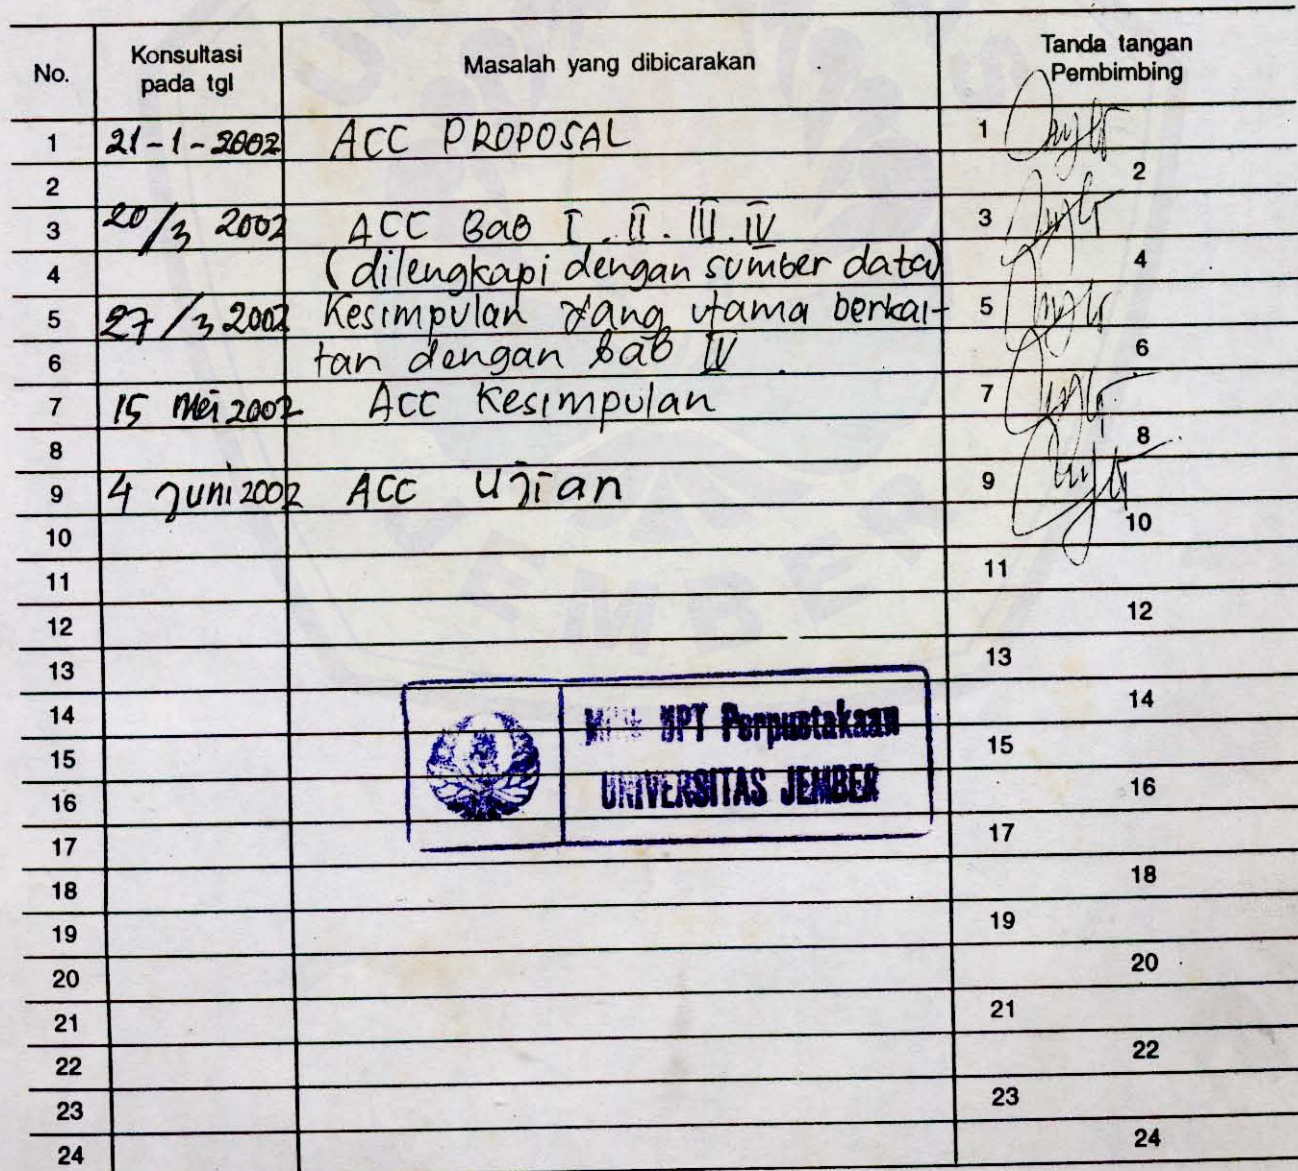 No. Konsultasi pada tgl Masalah yang dibicarakan Tanda tangan Pembimbing
1 21-1-2002 ACC PROPOSAL 1
2 2
3 20/3 2002 ACC Bab I. II. III. IV 3
4 (dilengkapi dengan sumber data) 4
5 27/3 2002 Kesimpulan yang utama berkai- 5
6 tan dengan bab IV. 6
7 15 Mei 2002 ACC Kesimpulan 7
8 8
9 4 Juni 2002 ACC Ujian 9
10 10
11 11
12 12
13 13
14 14
15 15
16 16
17 17
18 18
19 19
20 20
21 21
22 22
23 23
24 24
Milik UPT Perpustakaan
UNIVERSITAS JEMBER
JEMBER